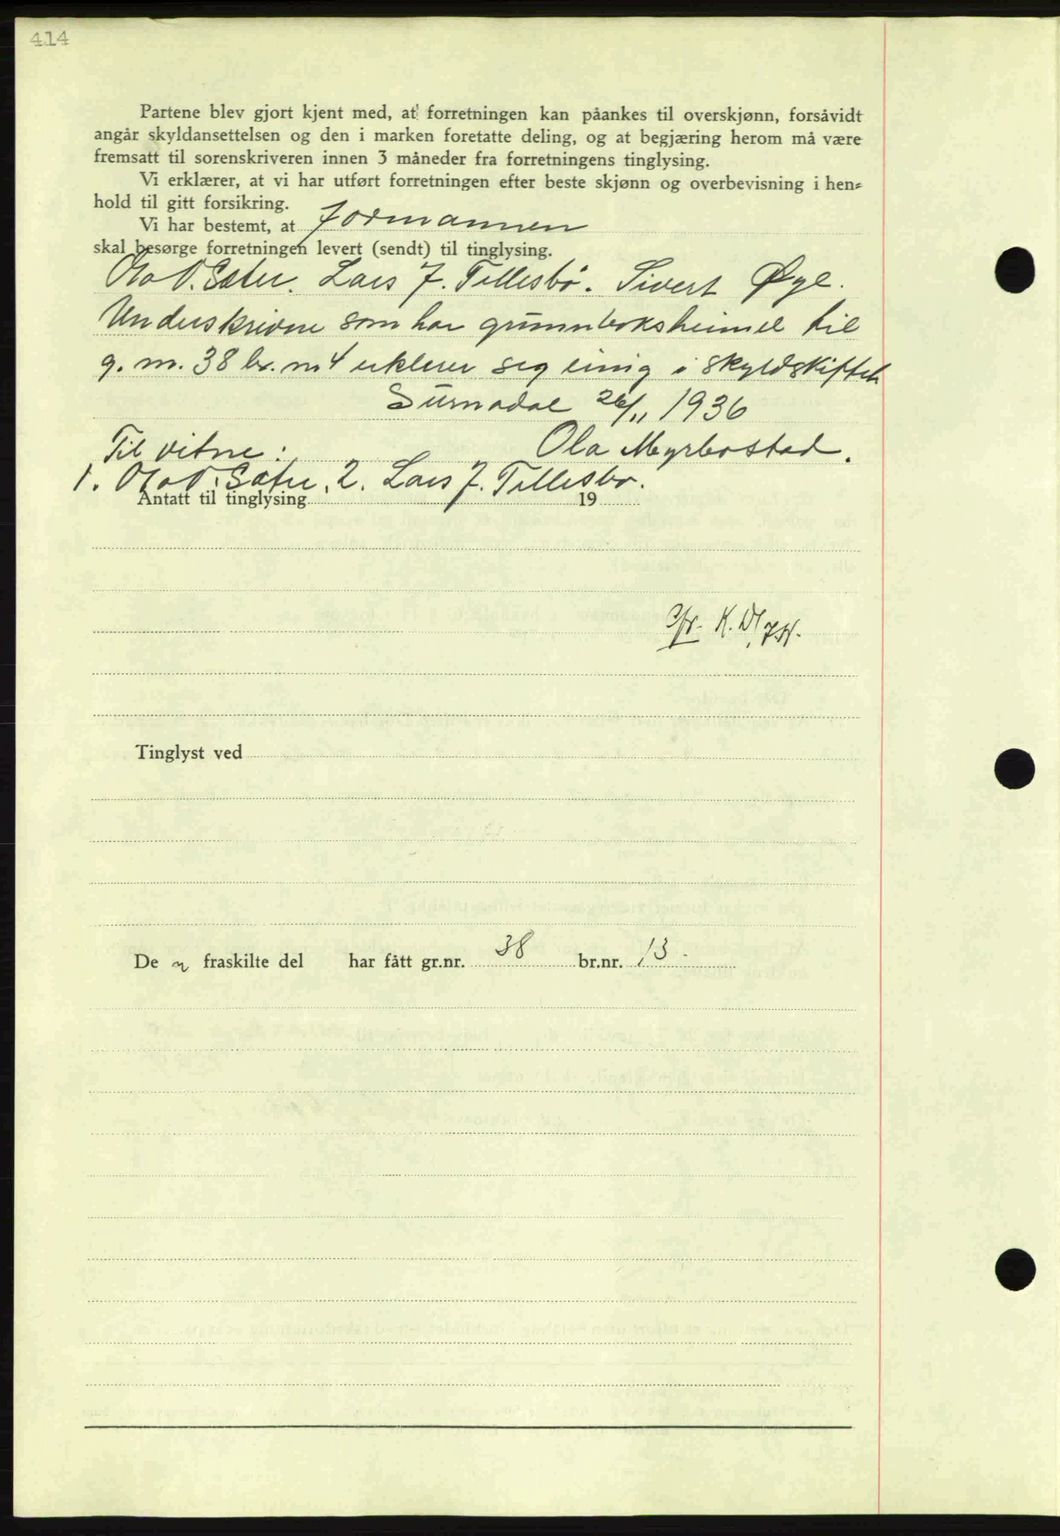 414
Partene blev gjort kjent med, at forretningen kan påankes til overskjønn, forsåvidt
angår skyldansettelsen og den i marken foretatte deling, og at begjæring herom må være
fremsatt til sorenskriveren innen 3 måneder fra forretningens tinglysing.
Vi erklærer, at vi har utført forretningen efter beste skjønn og overbevisning i hen-
hold til gitt forsikring.
Vi har bestemt, at formannen
skal besørge forretningen levert (sendt) til tinglysing.
Ola O. Sæter. Lars J. Tellesbø. Sivert Øye.
Underskrivne som har grunnboksheimel til
g. nr. 38 br. nr 4 erklerer seg einig i skyldskiftet
Surnadal 26/11 1936
Til vitne: Ola Myrbostad.
1. Ola O. Sæter. 2. Lars J. Tellesbø.
Antatt til tinglysing 19
Tinglyst ved
De n fraskilte del har fått gr.nr. 38 br.nr. 13.